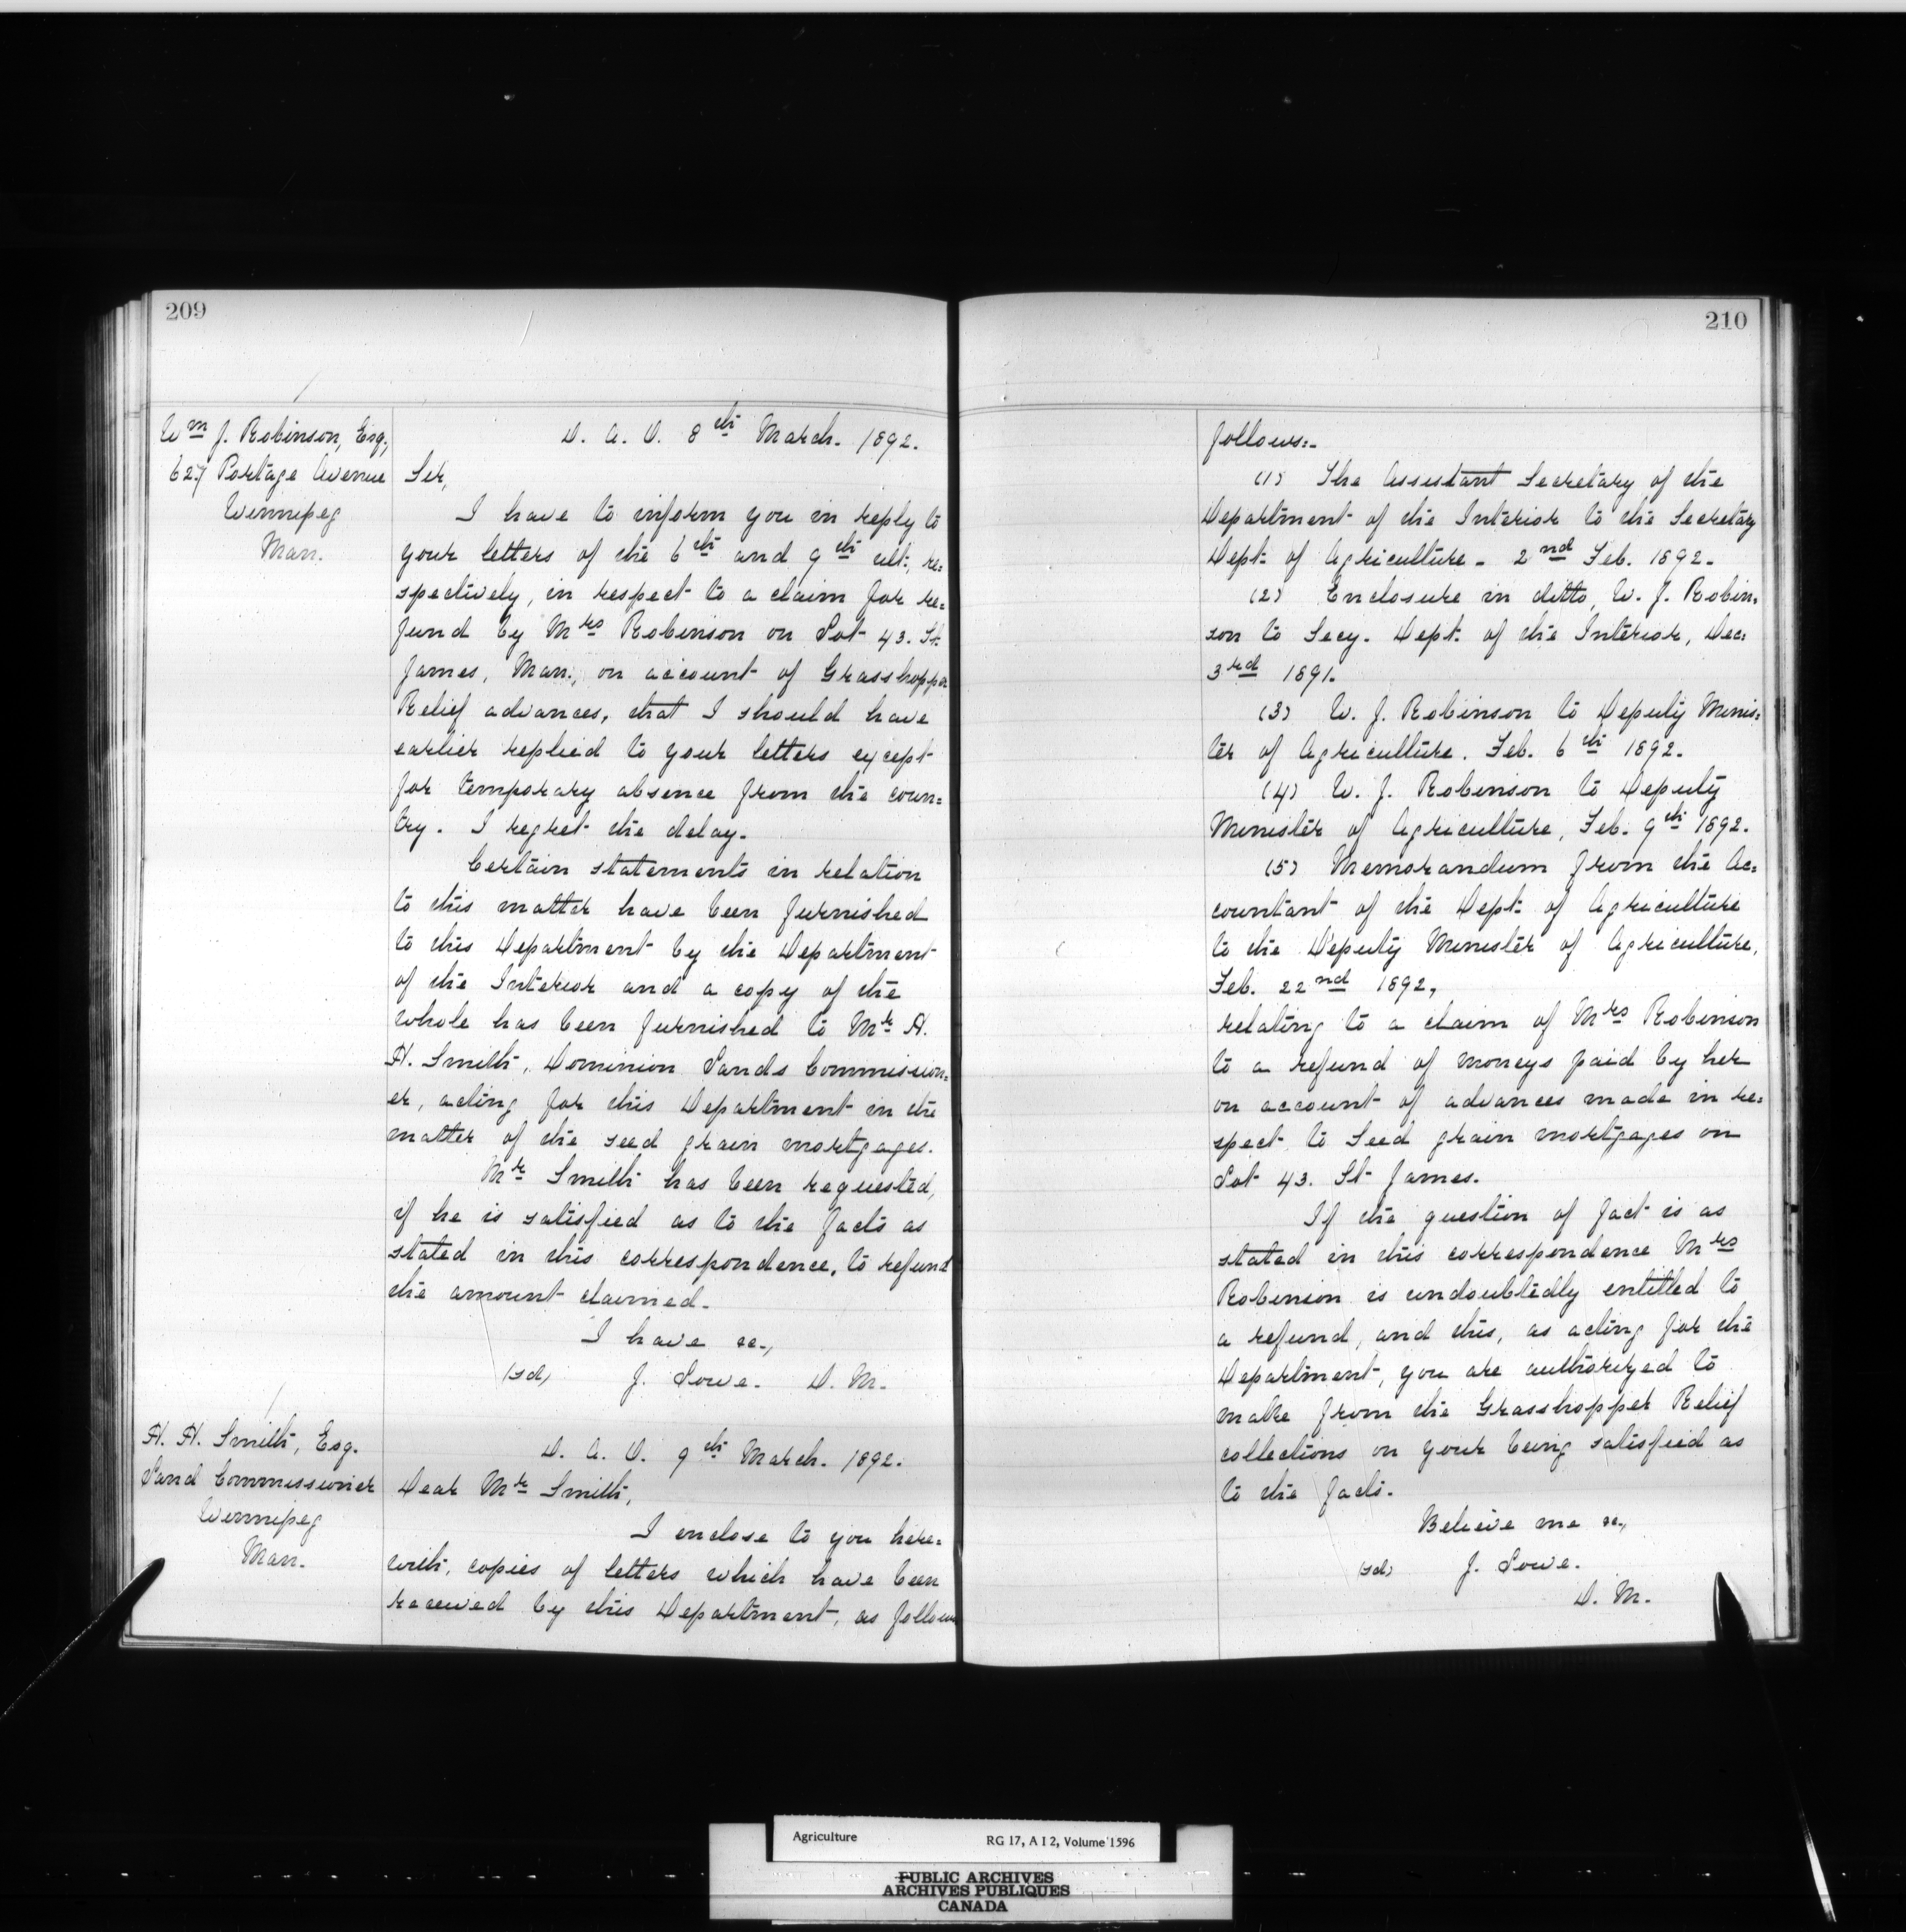 209
Wm J. Robinson, Esq,
627 Portage Avenue
Winnipeg
Man.
D. A. O. 8th March. 1892.
Sir,
I have to inform you in reply to
your letters of the 6th and 9th ult., re=
spectively, in respect to a claim for re=
fund by Mrs Robinson on Lot 43. St.
James, Man., on account of Grasshopper
Relief advances, that I should have
earlier replied to your letters except
for temporary absence from the coun=
try. I regret the delay.
Certain statements in relation
to this matter have been furnished
to this Department by the Department
of the Interior and a copy of the
whole has been furnished to Mr H.
H. Smith, Dominion Lands Commission=
er, acting for this Department in the
matter of the seed grain mortgages.
Mr Smith has been requested,
if he is satisfied as to the facts as
stated in this correspondence, to refund
the amount claimed.
I have &c.,
(sd) J. Lowe. D. M.
H. H. Smith, Esq.
Land Commissioner
Winnipeg
Man.
D. A. O. 9th March. 1892.
Dear Mr Smith,
I enclose to you here=
with, copies of letters which have been
received by this Department, as follows
210
follows:-
(1) The Assistant Secretary of the
Department of the Interior to the Secretary
Dept. of Agriculture - 2nd Feb. 1892.
(2) Enclosure in ditto, W. J. Robin=
son to Secy. Dept. of the Interior, Dec:
3rd 1891.
(3) W. J. Robinson to Deputy Minis=
ter of Agriculture. Feb. 6th 1892.
(4) W. J. Robinson to Deputy
Minister of Agriculture, Feb. 9th 1892.
(5) Memorandum from the Ac=
countant of the Dept. of Agriculture
to the Deputy Minister of Agriculture,
Feb. 22nd 1892,
relating to a claim of Mrs Robinson
to a refund of moneys paid by her
on account of advances made in re=
spect to seed grain mortgages on
Lot 43. St James.
If the question of fact is as
stated in this correspondence Mrs
Robinson is undoubtedly entitled to
a refund, and this, as acting for the
Department, you are authorized to
make from the Grasshopper Relief
collections on your being satisfied as
to the facts.
Believe me &c.,
(sd) J. Lowe.
D. M.
Agriculture RG 17, A I 2, Volume 1596
PUBLIC ARCHIVES
ARCHIVES PUBLIQUES
CANADA